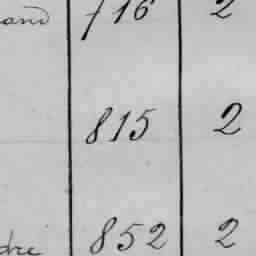 and 716 2
815 2
dre 852 2